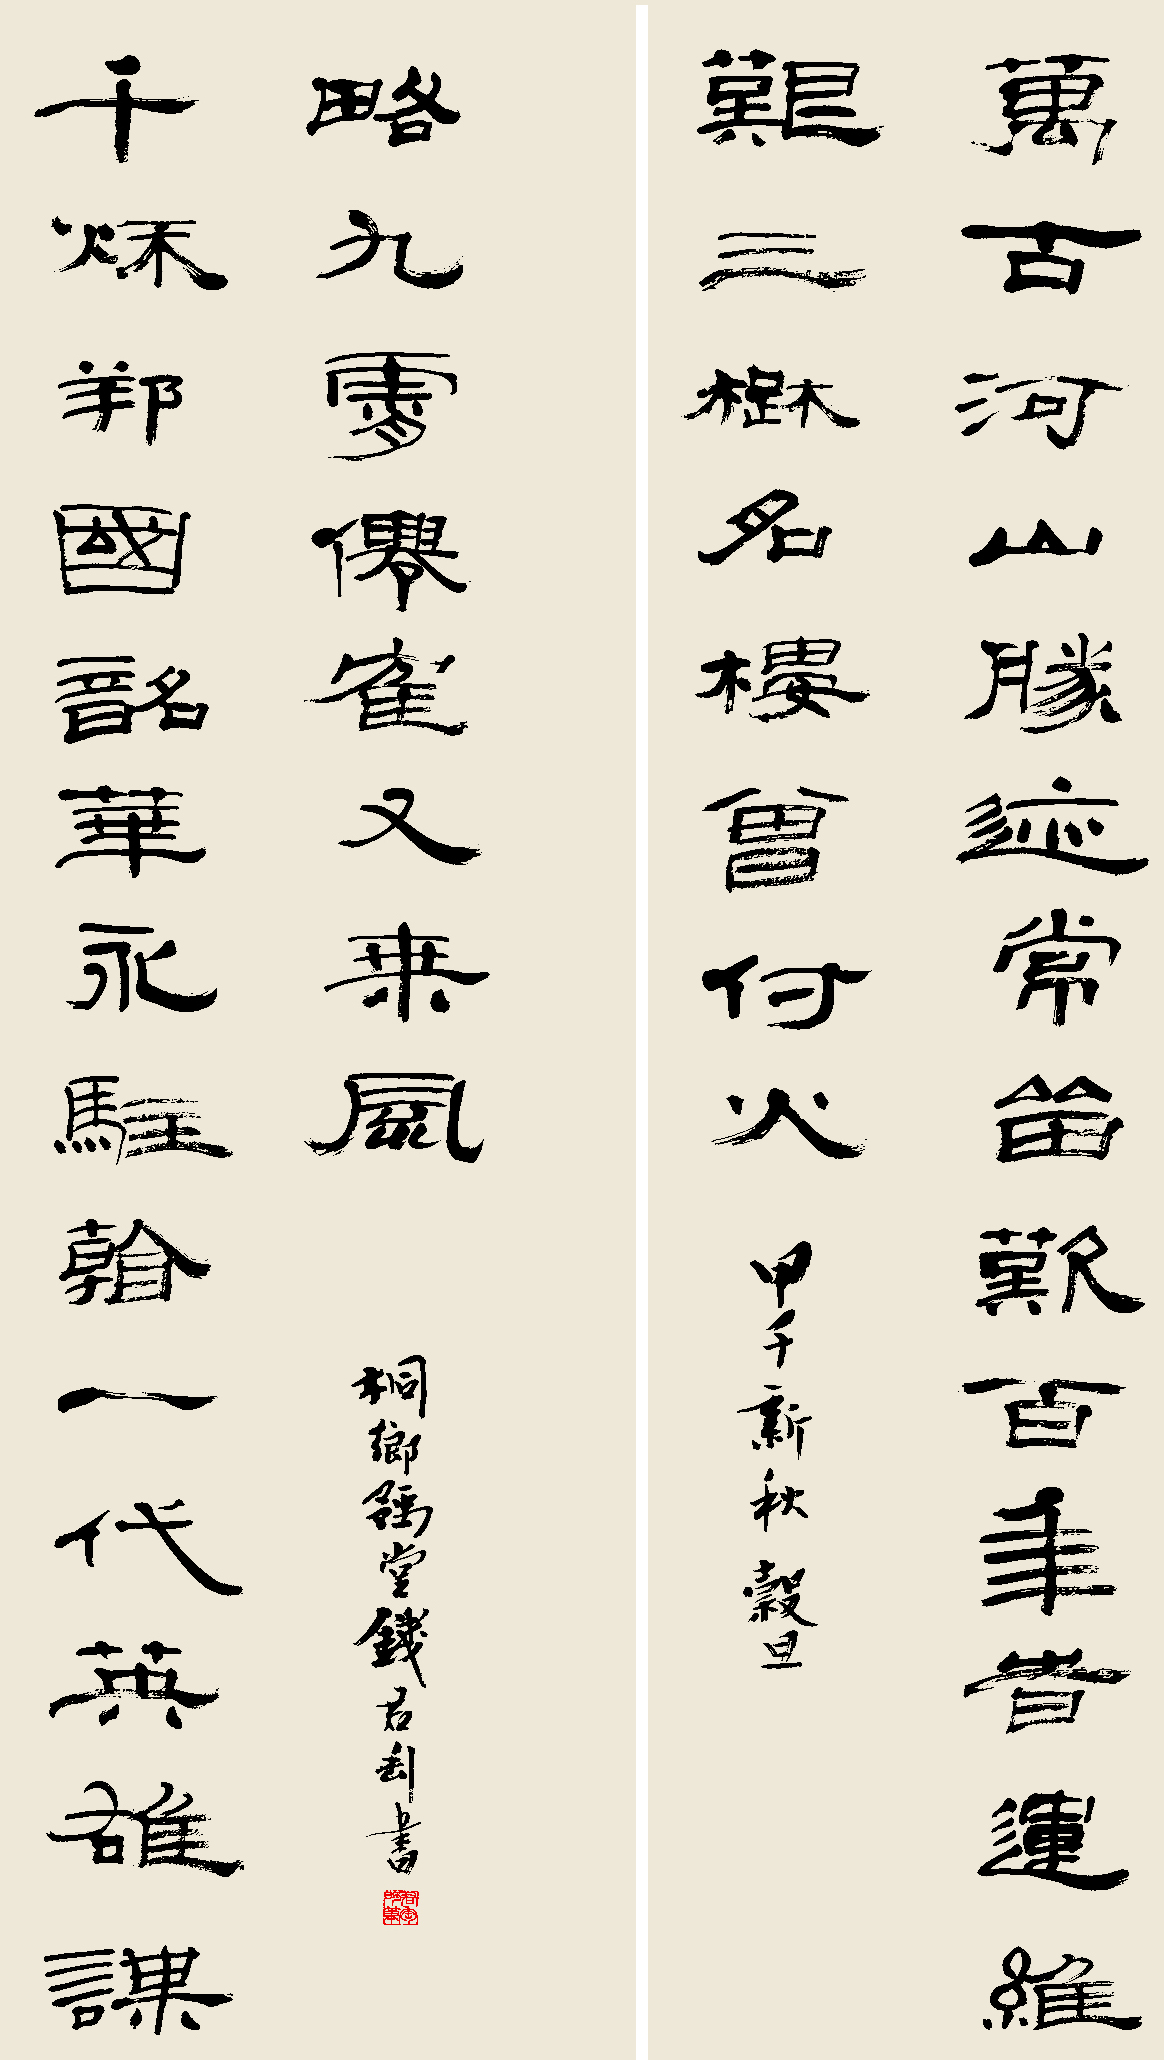 萬古河山勝迹常留歎百年昔運維
艱三楚名樓曾付火
甲午新秋穀旦
千秌邦國韶華永駐翰一代英雄謀
略九霄僊隺又乘風
桐鄉豫堂錢君匋書